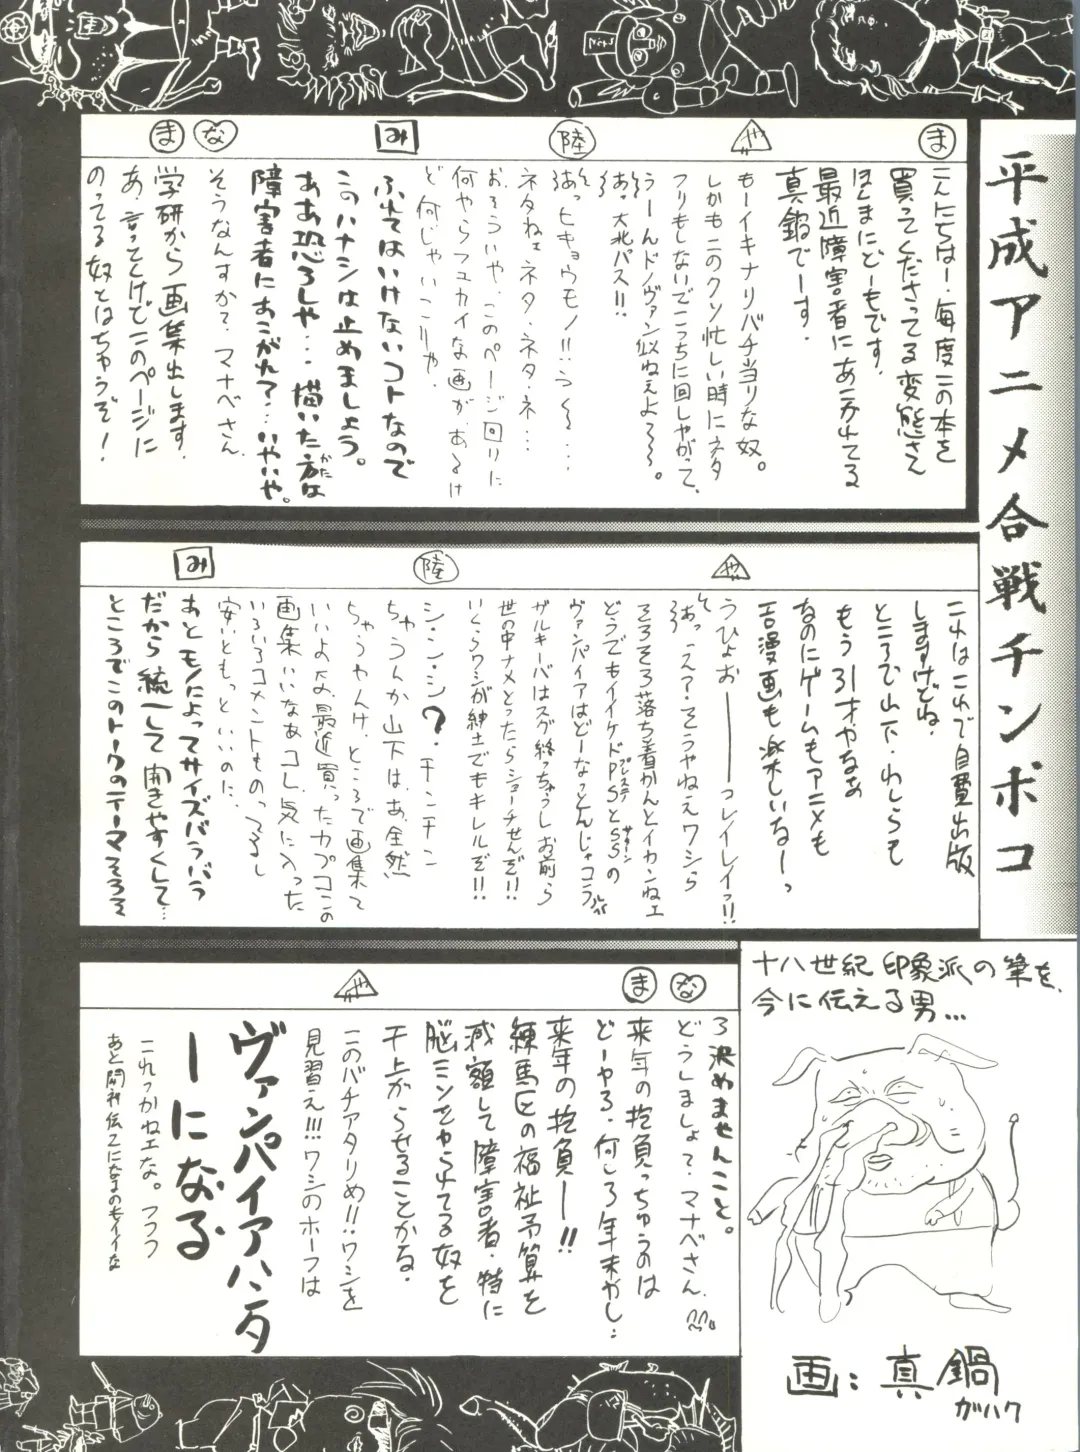 平成アニメ合戦チンポコ
ま
こんにちはー、毎度この本を
買ってくださってる変態さん
ほんまにどーもです。
最近障害者にあこがれてる
真鍋でーす。
や
もーイキナリバチ当りな奴。
しかもこのクソ忙しい時にネタ
フリもしないでこっちに回しやがって、
うーんドノヴァン似ねえよ〜〜。
あっ、大北バス!!
陸
あっヒキョウモノ!!うく〜…
ネタねェ、ネタ、ネタ、ネ…
お、そういや、このページ回りに
何やらフユカイな画が、あるけ
ど何じゃいこりゃ、
み
ふれてはいけないコトなので
このハナシは止めましょう。
ああ恐ろしや…描いた方な
かた
障害者にあこがれ?…いやいや。
な
そうなんすか?マナベさん、
ま
学研から画集出します、
あ、言っとくけどこのページに
のってる奴とはちゃうぞ!
これはこれで自費出版
しますけどね、
ところで山下、わしらって
もう引才やなあ
なのにゲームもアニメも
エロ漫画も楽しいなーっ
や
うひょおーーーっレイレイっ!!
あっ、え?そうやねえワシら
そろそろ落ち着かんとイカンねェ
どうでもイイケドPSとSSの
プレステ
サターン
ヴァンパイアはどーなっとんじゃコラ
ザルキーバはスグ終っちゃうしお前ら
世の中ナメとったらショーチせんぞ!!
いくらワシが紳士でもキレルぞ!!
陸
シ・ン・シ?チンチン
ちゃうんか山下は、あ、全然
ちゃうやんけ、ところで画集て
いいよな、最近買ったカプコンの
画集いいなあコレ、気に入った
いろいろコメントものってるし
安いともっといいのに、
み
あとモノによってサイズバラバラ
だから統一して開きやすくして…
ところでこのトークのテーマそろそ
ろ決めませんこと。
な
どうしましょ?マナベさん、
ま
来年の抱負っちゅうのは
どーやろ、何しろ年末やし…
来年の抱負ー!!
練馬区の福祉予算を
減額して障害者、特に
脳ミソをやられてる奴を
干上がらせることかな、
や
このバチアタリめ!!ワシを
見習え!!!ワシのホーフは
ヴァンパイアハンタ
ーになる
これっかねエな。フフフ
十八世紀印象派の筆を、
今に伝える男…
画:真鍋
ガハク